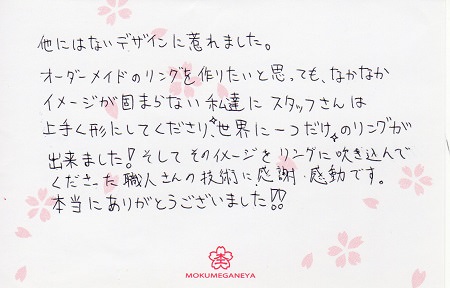 他にはないデザインに惹れました。
オーダーメイドのリングを作りたいと思っても、なかなか
イメージが固まらない私達にスタッフさんは
上手く形にしてくださり、世界に一つだけのリングが
出来ました!そしてそのイメージをリングに吹き込んで
くださった職人さんの技術に感謝・感動です。
本当にありがとうございました!!
MOKUMEGANEYA